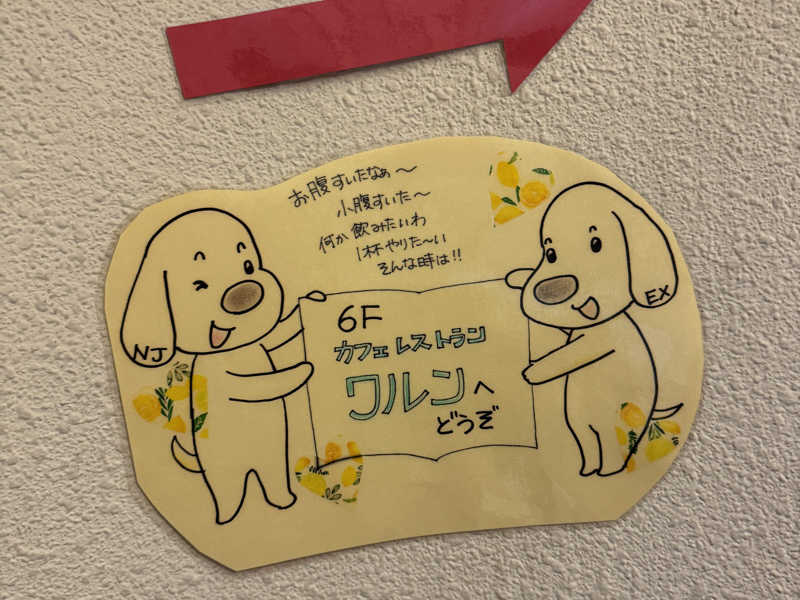 お腹すいたなぁ〜
小腹すいた〜
何か飲みたいわ
1杯やりた〜い
そんな時は!!
6F
カフェレストラン
ワルンへ
どうぞ
NJ
EX